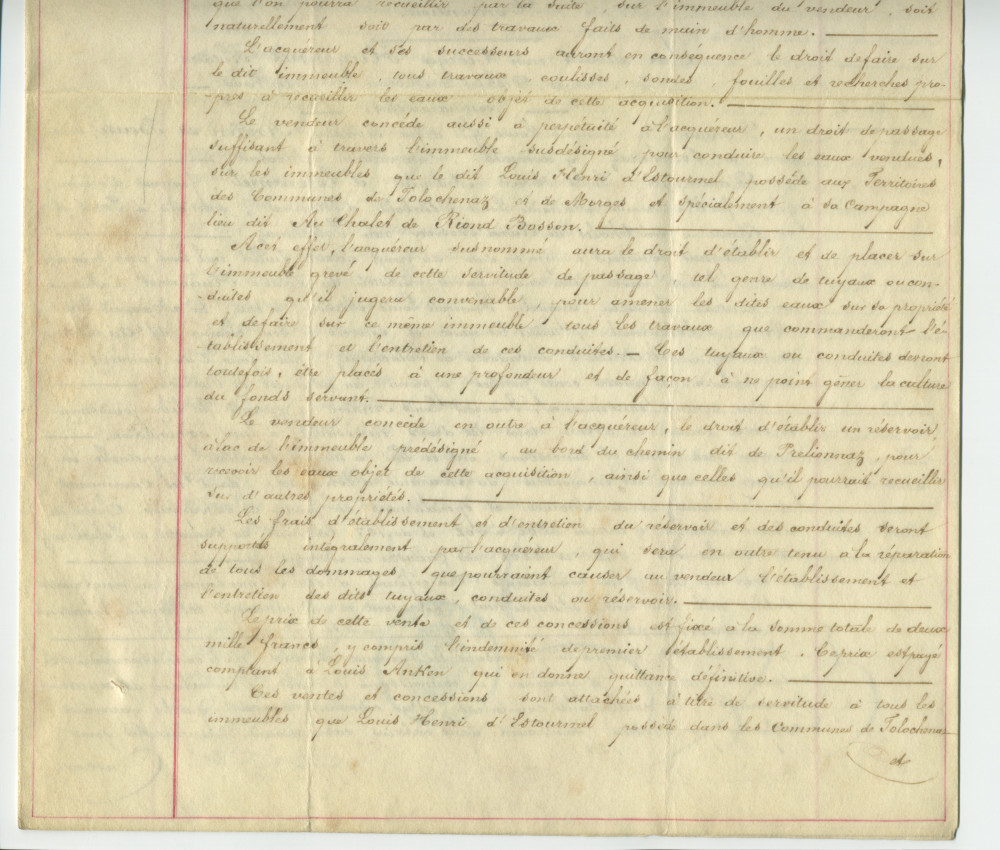 que l'on pourra recueillir par la suite, sur l'immeuble du vendeur, soit
naturellement soit par des travaux faits de main d'homme.
L'acquéreur et ses successeurs auront en conséquence le droit de faire sur
le dit immeuble, tous travaux, coulisses, sondes, fouilles et recherches pro-
-pres à recueillir les eaux objet de cette acquisition.
Le vendeur concède aussi à perpétuité à l'acquéreur, un droit de passage
suffisant à travers l'immeuble susdésigné pour conduire les eaux vendues,
sur les immeubles que le dit Louis Henri d'Estourmel possède aux Territoires
des Communes de Tolochenaz et de Morges et spécialement à sa Campagne
lieu dit Au Chalet de Riond Bosson.
A cet effet, l'acquéreur susnommé aura le droit d'établir et de placer sur
l'immeuble grevé de cette servitude de passage, tel genre de tuyaux ou con-
-duites qu'il jugera convenable, pour amener les dites eaux sur sa propriété
et de faire sur ce même immeuble tous les travaux que commanderont l'é-
tablissement et l'entretien de ces conduites. — Ces tuyaux ou conduites devront
toutefois, être placés à une profondeur et de façon à ne point gêner la culture
du fonds servant.
Le vendeur concède en outre à l'acquéreur, le droit d'établir un réservoir
à lac de l'immeuble prédésigné, au bord du chemin dit de Prelionnaz, pour
recevoir les eaux objet de cette acquisition, ainsi que celles qu'il pourrait recueillir
sur d'autres propriétés.
Les frais d'établissement et d'entretien du réservoir et des conduites seront
supportés intégralement par l'acquéreur, qui sera en outre tenu à la réparation
de tous les dommages que pourraient causer au vendeur l'établissement et
l'entretien des dits tuyaux, conduites ou réservoir.
Le prix de cette vente et de ces concessions est fixé à la somme totale de deux
mille francs, y compris l'indemnité de premier établissement. Ce prix est payé
comptant à Louis Anken qui en donne quittance définitive.
Ces ventes et concessions sont attachées à titre de servitude à tous les
immeubles que Louis Henri d'Estourmel possède dans les Communes de Tolochenaz
et